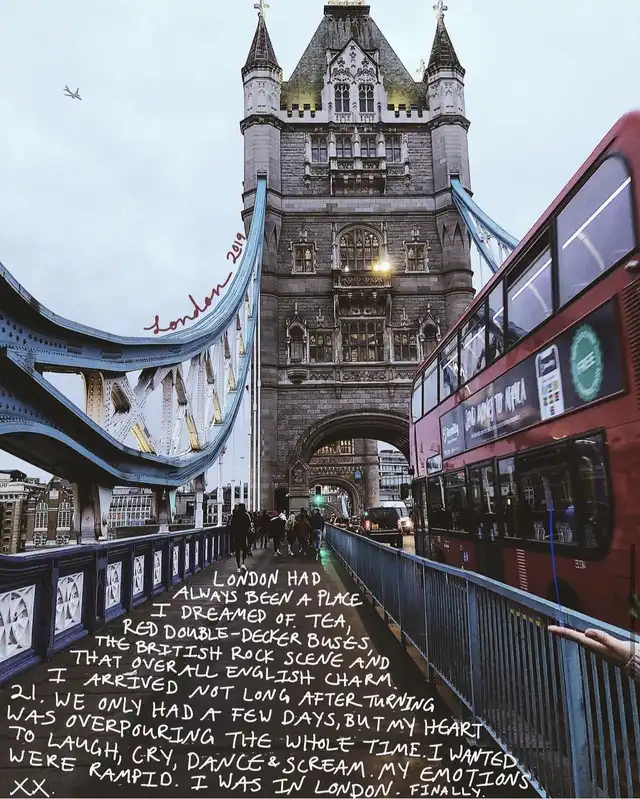 London 2019
SEND MONEY TO AFRICA
FREE
LONDON HAD
ALWAYS BEEN A PLACE
I DREAMED OF. TEA,
RED DOUBLE-DECKER BUSES,
THE BRITISH ROCK SCENE AND
THAT OVERALL ENGLISH CHARM.
I ARRIVED NOT LONG AFTER TURNING
21. WE ONLY HAD A FEW DAYS, BUT MY HEART
WAS OVERPOURING THE WHOLE TIME. I WANTED
TO LAUGH, CRY, DANCE & SCREAM. MY EMOTIONS
WERE RAMPID. I WAS IN LONDON. FINALLY.
XX.